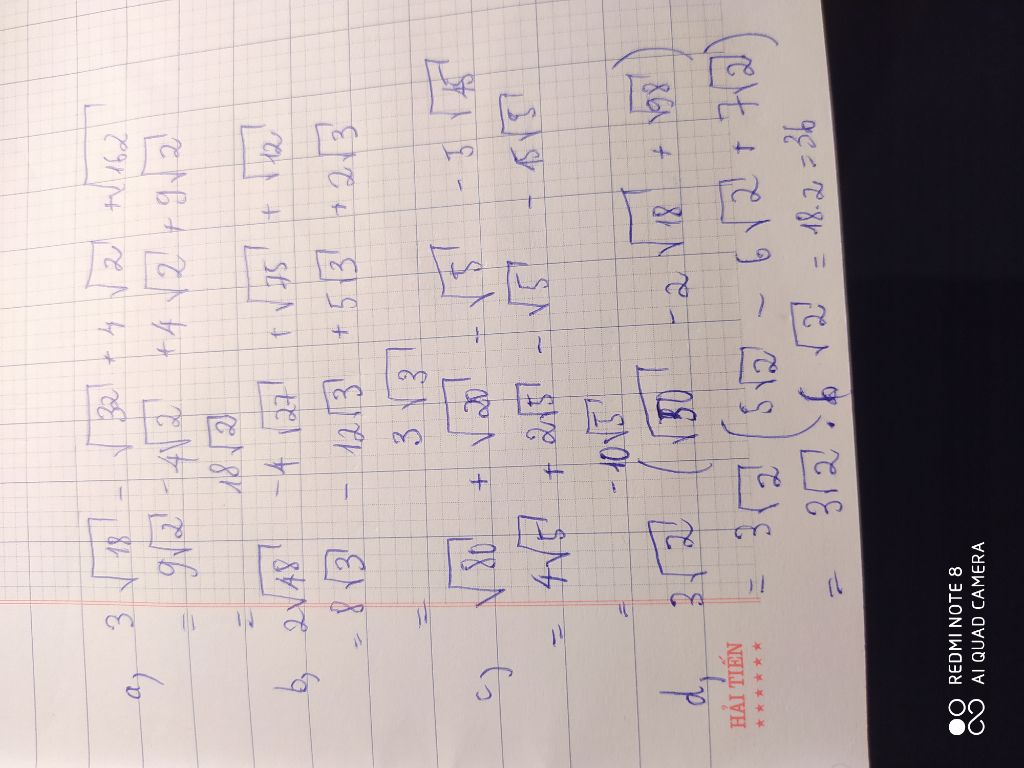 a) 3√18 - √32 + 4√2 + √162
= 9√2 - 4√2 + 4√2 + 9√2
= 18√2
b, 2√48 - 4√27 + √75 + √12
= 8√3 - 12√3 + 5√3 + 2√3
= 3√3
c) √80 + √20 - √5 - 3√45
= 4√5 + 2√5 - √5 - 15√5
= -10√5
d, 3√2 (√50 - 2√18 + √98)
= 3√2 (5√2 - 6√2 + 7√2)
= 3√2 . 6√2 = 18.2 = 36
HẢI TIẾN
REDMI NOTE 8
AI QUAD CAMERA